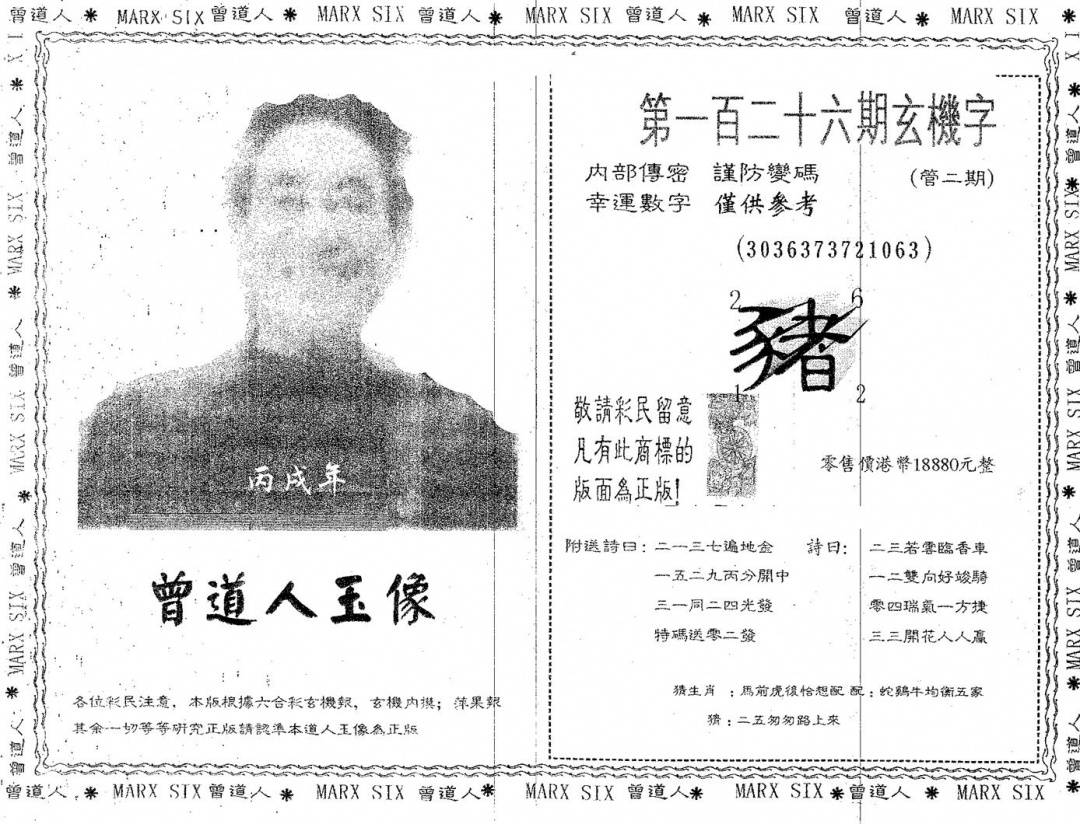 曾道人 * MARX SIX 曾道人 * MARX SIX 曾道人 * MARX SIX 曾道人 * MARX SIX 曾道人 * MARX SIX *
丙戌年
曾道人玉像
各位彩民注意，本版根據六合彩玄機報，玄機內摸；萍果報
其余一切等等研究正版請認準本道人玉像為正版
第一百二十六期玄機字
內部傳密 謹防變碼 (管二期)
幸運數字 僅供參考
(3036373721063)
2 6
豬
1 2
敬請彩民留意
凡有此商標的
版面為正版!
零售價港幣18880元整
附送詩曰: 二一三七遍地金
一五二九丙分開中
三一同二四光發
特碼送零二發
詩曰: 二三若雲臨香車
一二雙向好竣騎
零四瑞氣一方捷
三三開花人人贏
猜生肖 : 馬前虎後恰想配 配 : 蛇鷄牛均衡五家
猜 : 二五匆匆路上來
曾道人 * MARX SIX 曾道人 * MARX SIX 曾道人 * MARX SIX 曾道人 * MARX SIX * 曾道人 * MARX SIX *